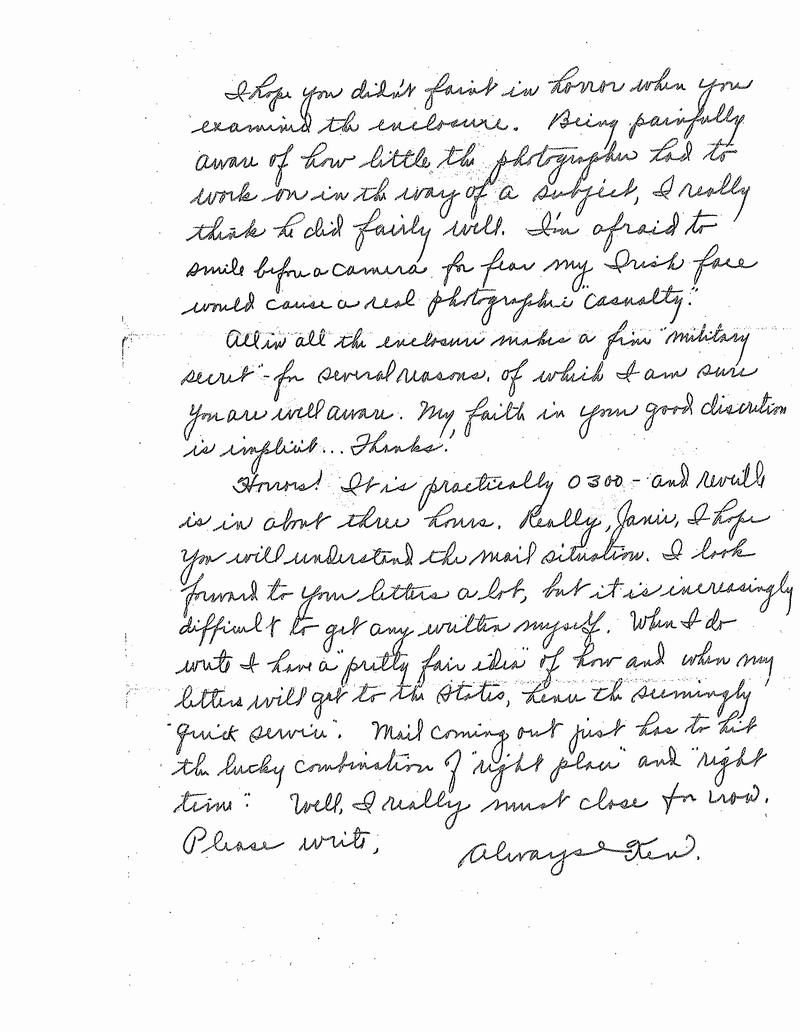 I hope you didn't faint in horror when you
examined the enclosure. Being painfully
aware of how little the photographer had to
work on in the way of a subject, I really
think he did fairly well. I'm afraid to
smile before a camera for fear my Irish face
would cause a real photographic "casualty."
All in all the enclosure makes a fine "military
secret" - for several reasons of which I am sure
you are well aware. My faith in your good discretion
is implicit... Thanks!
Horrors! It is practically 0300 - and reveille
is in about three hours. Really, Janie, I hope
you will understand the mail situation. I look
forward to your letters a lot, but it is increasingly
difficult to get any written myself. When I do
write I have a "pretty fair idea" of how and when my
letters will get to the States, hence the seemingly
"quick service". Mail coming out just has to hit
the lucky combination of "right place" and "right
time". Well, I really must close for now.
Please write,
Always Ken.